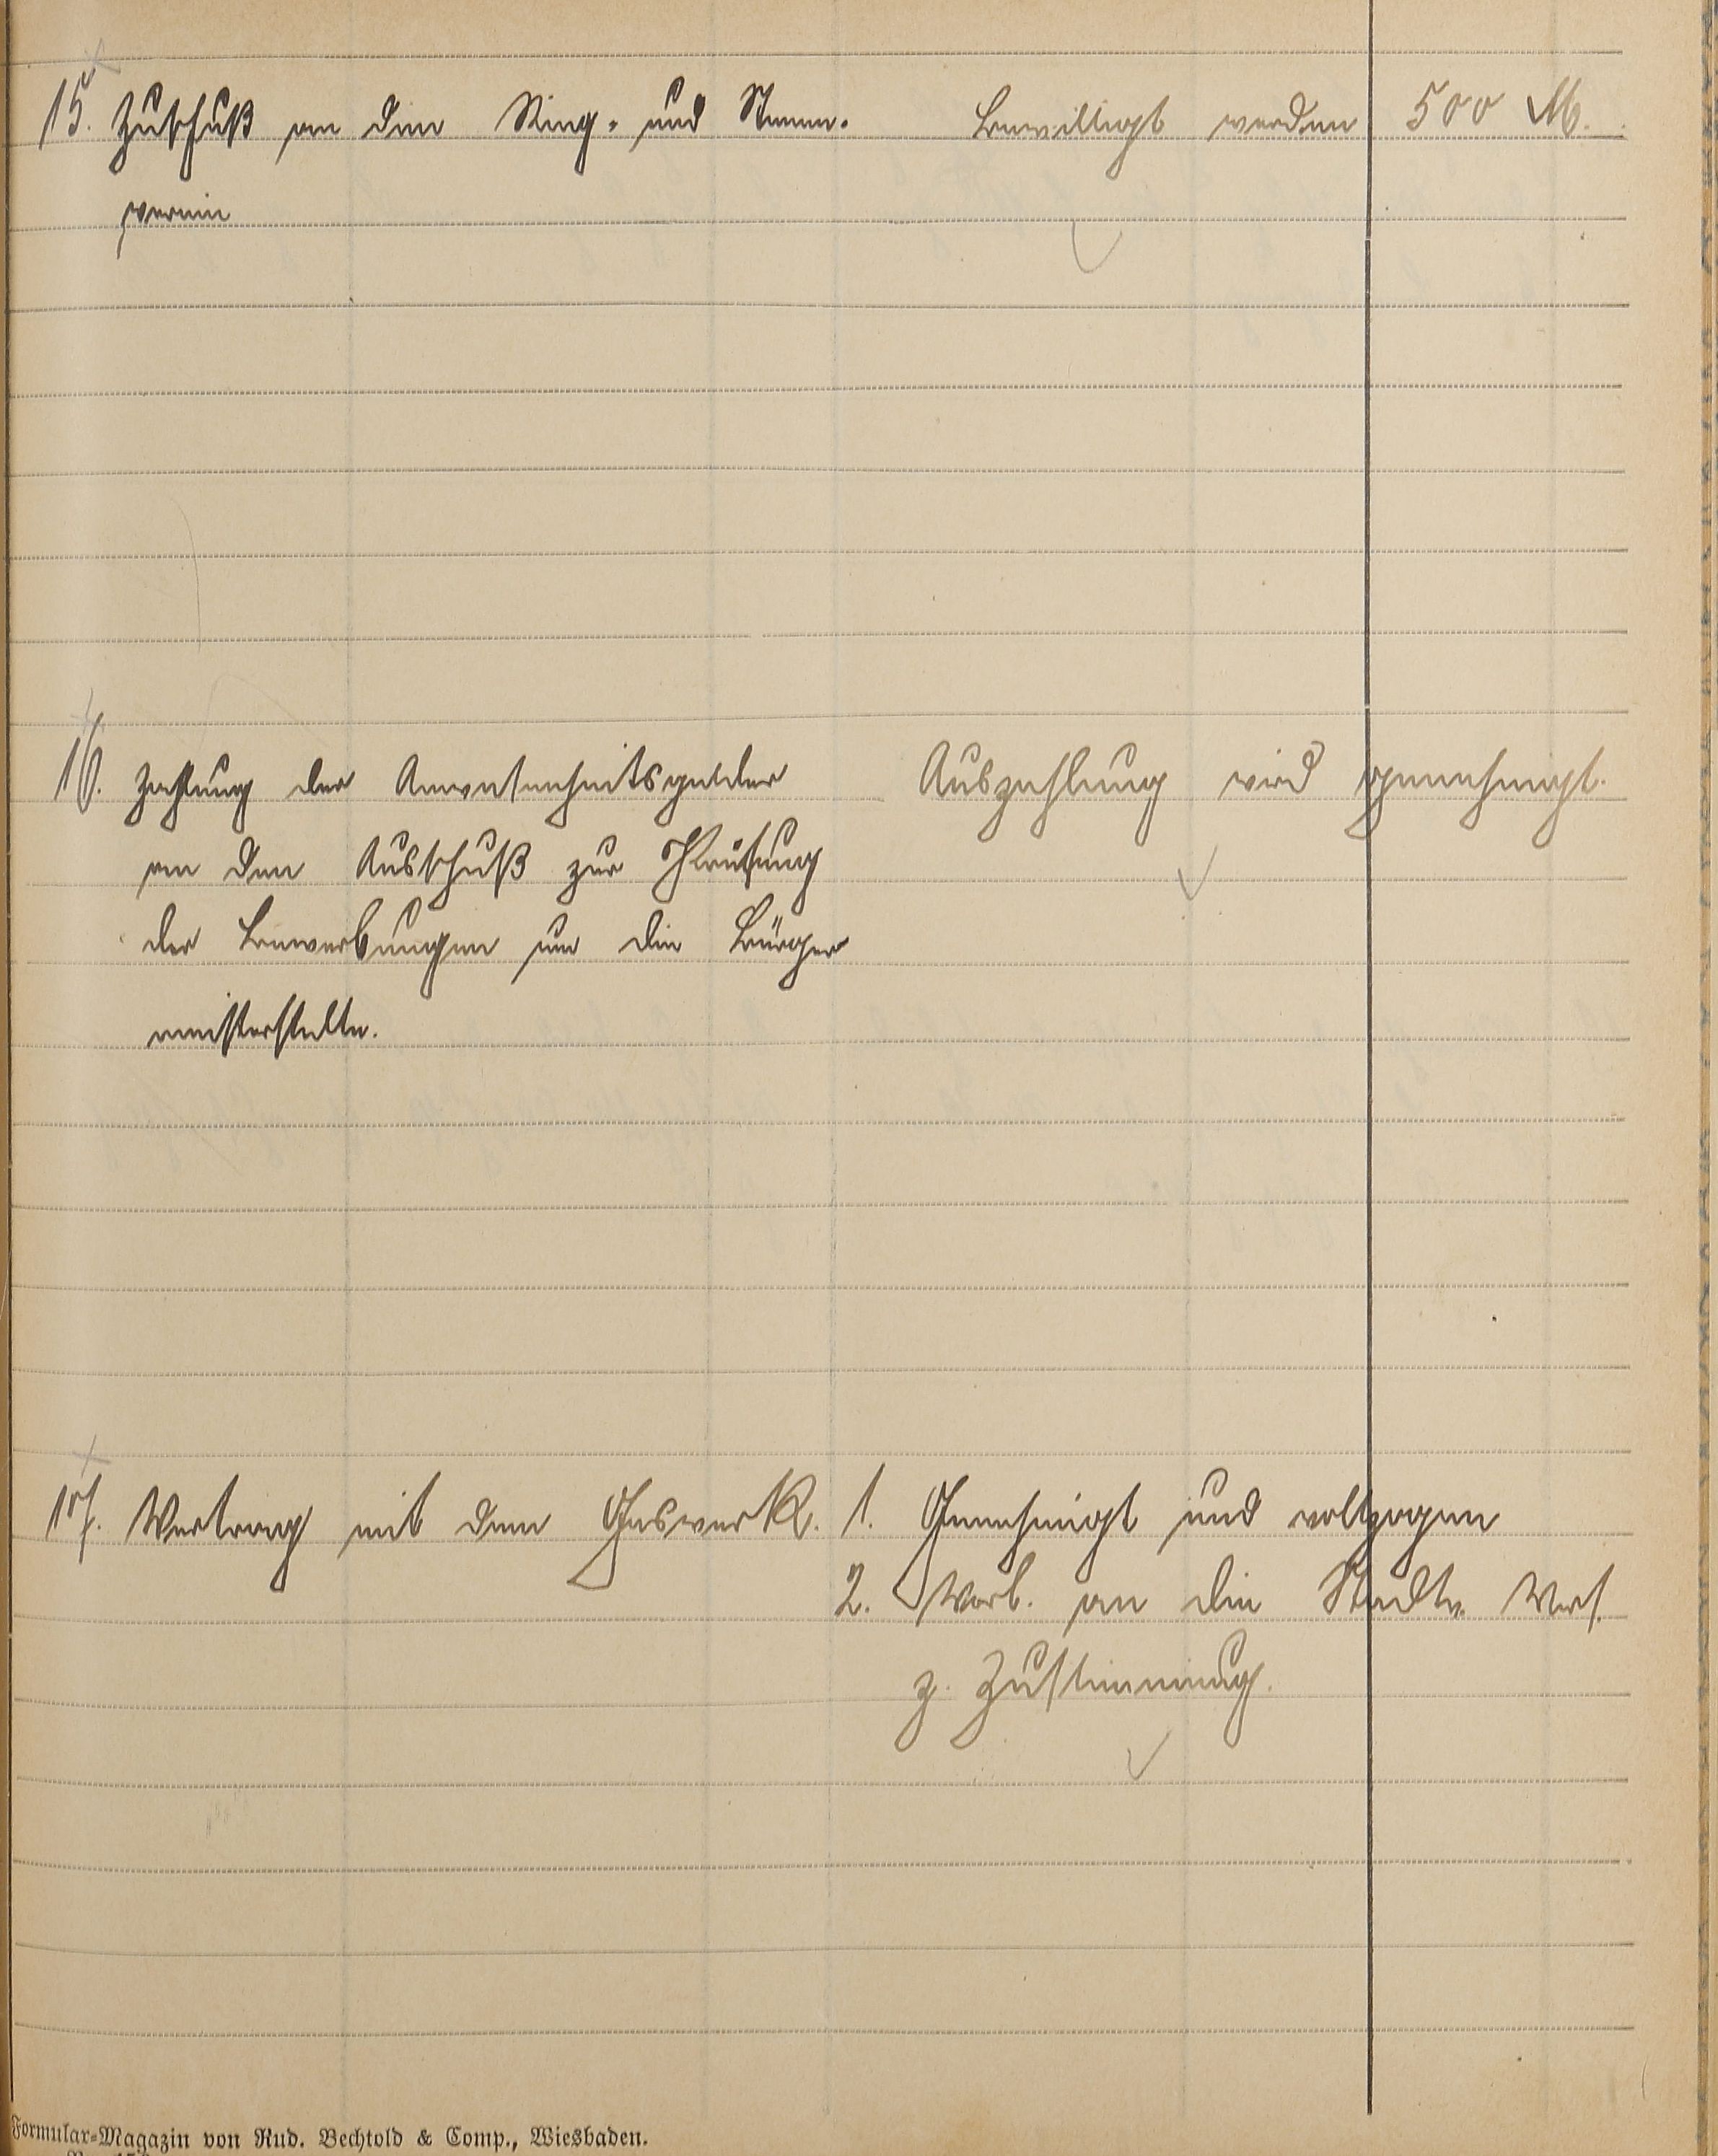 15. Zuschuß an den Ring- und Stemm-
verein
Bewilligt werden 500 M.
16. Zahlung der Anwesenheitsgelder
an den Ausschuß zur Prüfung
der Bewerbungen um die Bürger
meisterstelle.
Auszahlung wird genehmigt.
17. Vertrag mit dem Gaswerk.
1. Genehmigt und vollzogen
2. Vorl. an die Stadtv. Vers.
z. Zustimmung.
Formular-Magazin von Rud. Bechtold & Comp., Wiesbaden.